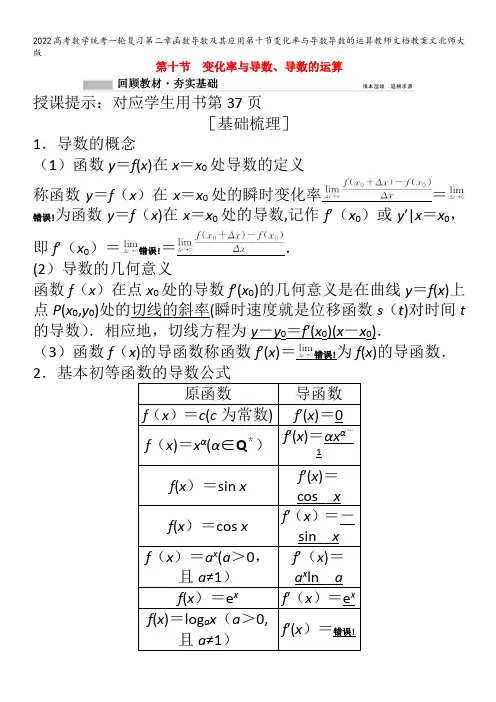 2022高考数学统考一轮复习第二章函数导数及其应用第十节变化率与导数导数的运算教师文档教案文北师大
版
第十节 变化率与导数、导数的运算
回顾教材·夯实基础 课本温综 追根求源
授课提示：对应学生用书第37页
［基础梳理］
1．导数的概念
（1）函数y＝f(x)在x＝x₀处导数的定义
称函数y＝f（x）在x＝x₀处的瞬时变化率lim(Δx→0) (f(x₀＋Δx)－f(x₀))/Δx＝lim(Δx→0)
错误!为函数y＝f（x)在x＝x₀处的导数,记作f′（x₀）或y′|x＝x₀，
即f′（x₀）＝lim(Δx→0)错误!＝lim(Δx→0) (f(x₀＋Δx)－f(x₀))/Δx．
(2）导数的几何意义
函数f（x）在点x₀处的导数f′(x₀)的几何意义是在曲线y＝f(x)上
点P(x₀,y₀)处的切线的斜率(瞬时速度就是位移函数s（t)对时间t
的导数）．相应地，切线方程为y－y₀＝f′(x₀)(x－x₀)．
（3）函数f（x)的导函数称函数f′(x)＝lim(Δx→0)错误!为f(x)的导函数．
2．基本初等函数的导数公式
原函数 导函数
f（x）＝c(c为常数) f′(x)＝0
f（x)＝xᵅ(α∈Q*） f′(x)＝αxᵅ⁻
¹
f(x）＝sin x f′(x)＝
cos__x
f(x）＝cos x f′（x）＝－
sin__x
f（x）＝aˣ(a＞0，
且a≠1） f′（x)＝
aˣln__a
f(x）＝eˣ f′（x）＝eˣ
f(x)＝logₐx（a＞0,
且a≠1） f′(x）＝错误!